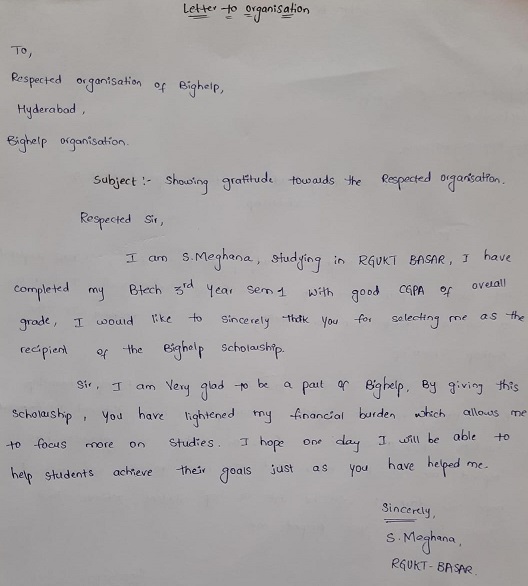 Letter to organisation
To,
Respected organisation of Bighelp,
Hyderabad,
Bighelp organisation.
Subject :- Showing gratitude towards the Respected organisation.
Respected Sir,
I am S.Meghana, studying in RGUKT BASAR, I have
completed my Btech 3rd Year Sem 1 with good CGPA of overall
grade, I would like to Sincerely thak you for selecting me as the
recipient of the Bighelp Scholarship.
Sir, I am Very glad to be a part of Bighelp. By giving this
Scholarship, you have lightened my financial burden which allows me
to focus more on Studies. I hope one day I will be able to
help students achieve their goals just as you have helped me.
Sincerely,
S. Meghana,
RGUKT-BASAR.